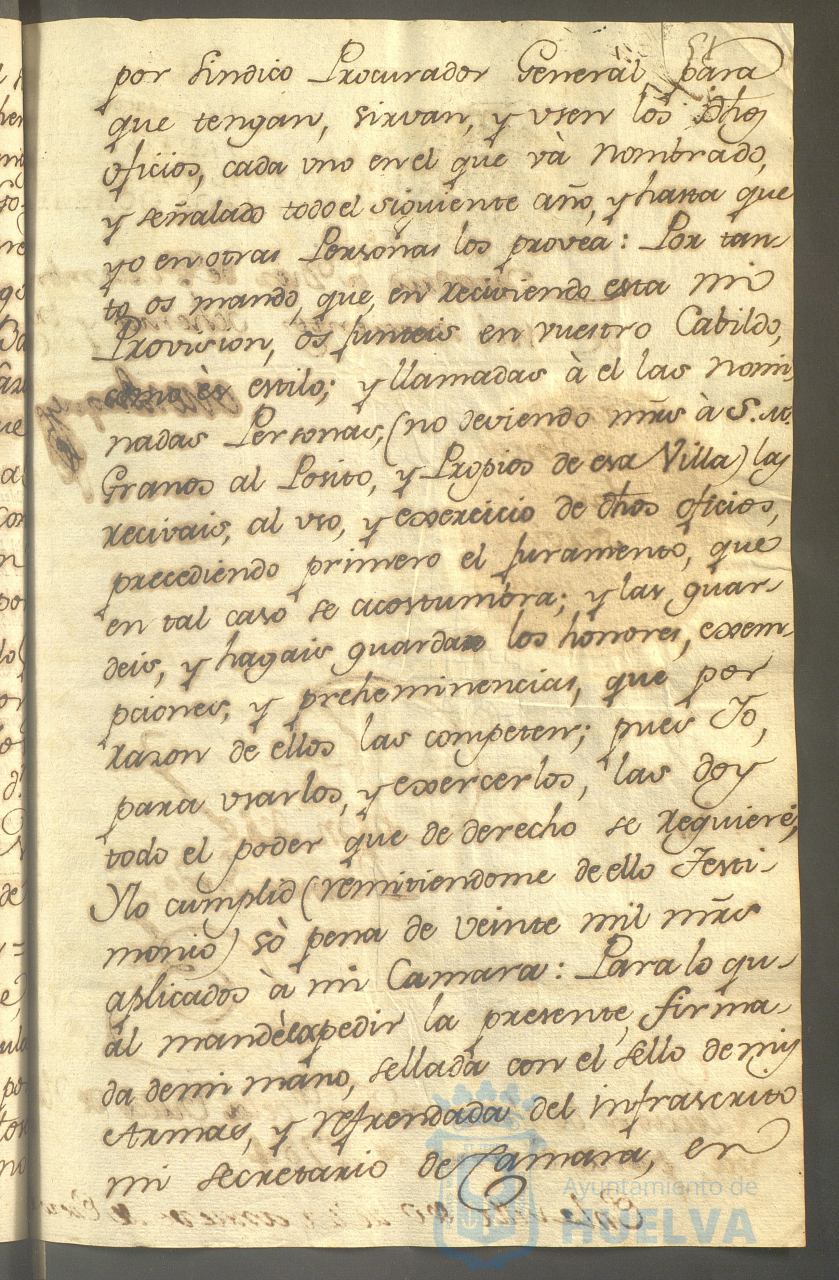 por Sindico Procurador General, para
que tengan, sirvan, y vsen los dhos
oficios, cada vno en el que và nombrado,
y señalado todo el siguiente año, y hasta que
yo en otras Personas los provea: Por tan-
to os mando, que, en reciviendo esta mi
Provision, os junteis en vuestro Cabildo,
como ès estilo; y llamadas à el las nomi-
nadas Personas, (no deviendo mrs à S. M.
Granos al Posito, y Propios de esa Villa) las
recivais, al vso, y exercicio de dhos oficios,
precediendo primero el juramento, que
en tal caso se acostumbra; y las guar-
deis, y hagais guardar los honores, exem-
pciones, y preheminencias, que por
razon de ellos las competen; pues Yo,
para vsarlos, y exercerlos, las doy
todo el poder que de derecho se requiere,
Ylo cumplid (remitiendome de ello Testi-
monio) sò pena de veinte mil mrs
aplicados à mi Camara: Para lo qu-
al mandè expedir la presente, firma-
da de mi mano, sellada con el sello de mis
Armas, y refrendada del infrascrito
mi secretario de Camara, en
Ayuntamiento de
HUELVA